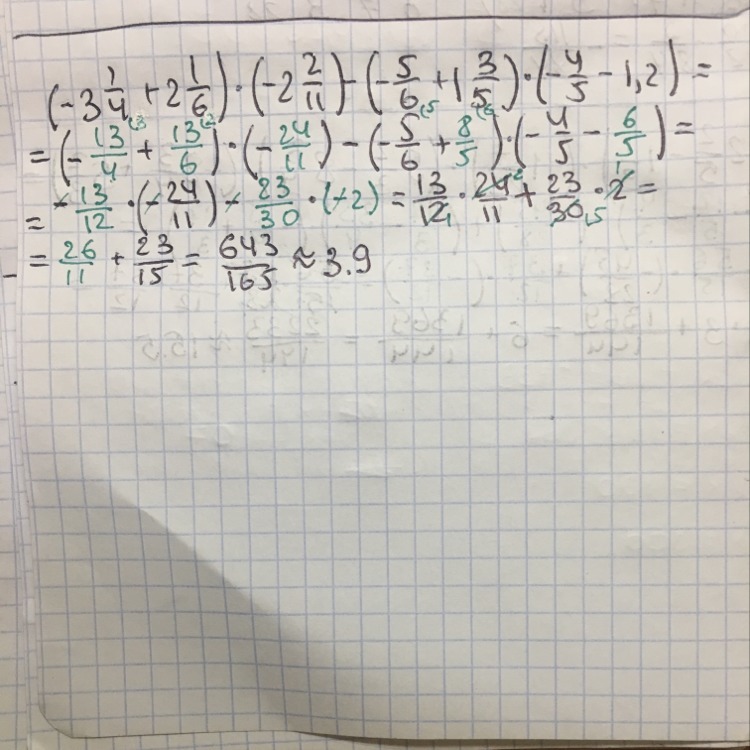 (-3 1/4 + 2 1/6) · (-2 2/11) - (-5/6 + 1 3/5) · (-4/5 - 1,2) =
= (-13/4 (3 + 13/6 (2) · (-24/11) - (-5/6 (5 + 8/5 (6) · (-4/5 - 6/5) =
= -13/12 · (-24/11) - 23/30 · (-2) = 13/12 1 · 24 2/11 + 23/30 15 · 2 1 =
= 26/11 + 23/15 = 643/165 ≈ 3.9